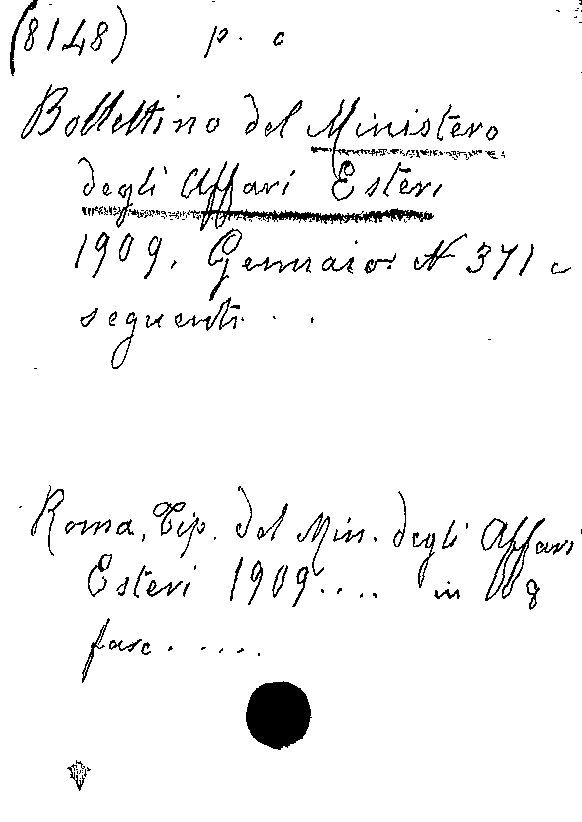 (8148) p. c
Bollettino del Ministero
degli Affari Esteri
1909. Gennaio. N 371 e
seguenti. . .
Roma, Tip. del Min. degli Affari
Esteri 1909.... in 8
fasc. .....